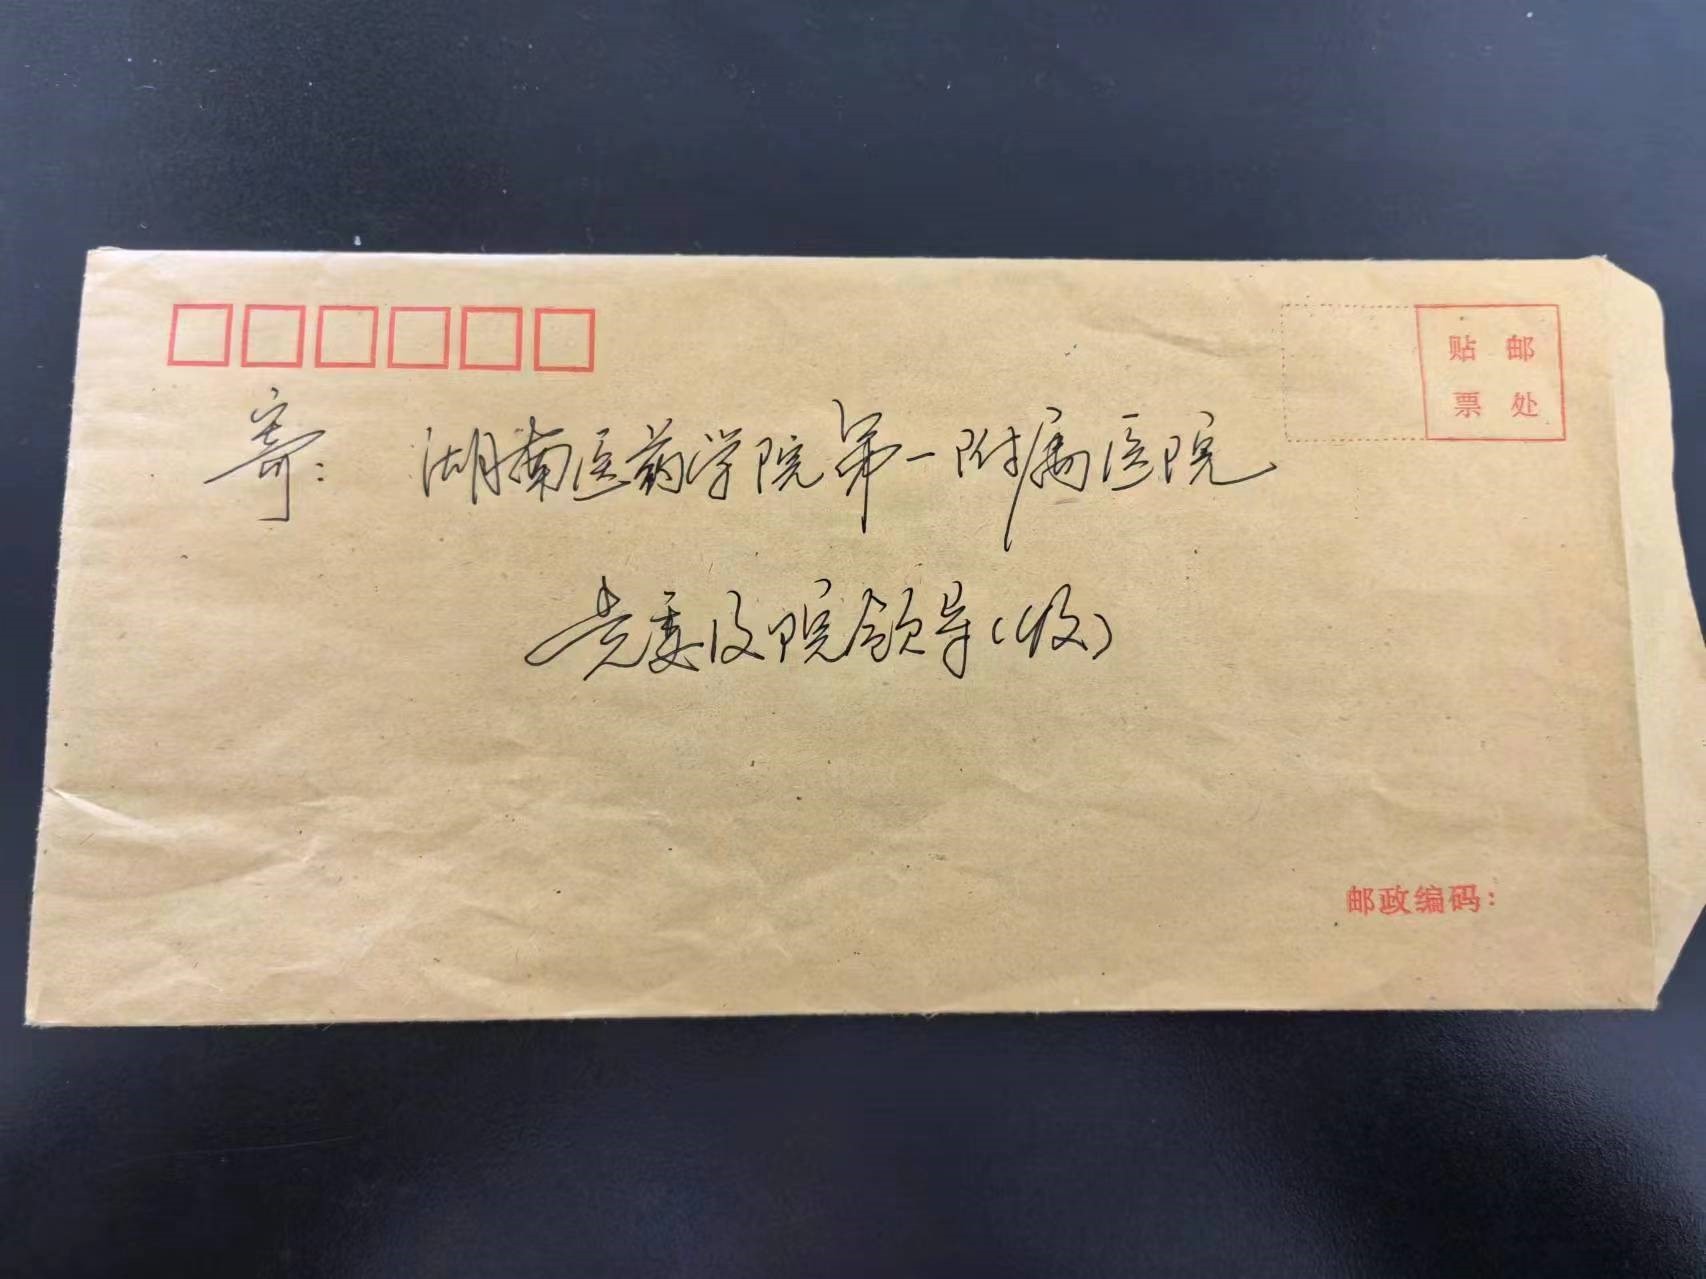 贴邮
票处
寄：湖南医药学院第一附属医院
党委及院领导(收)
邮政编码：